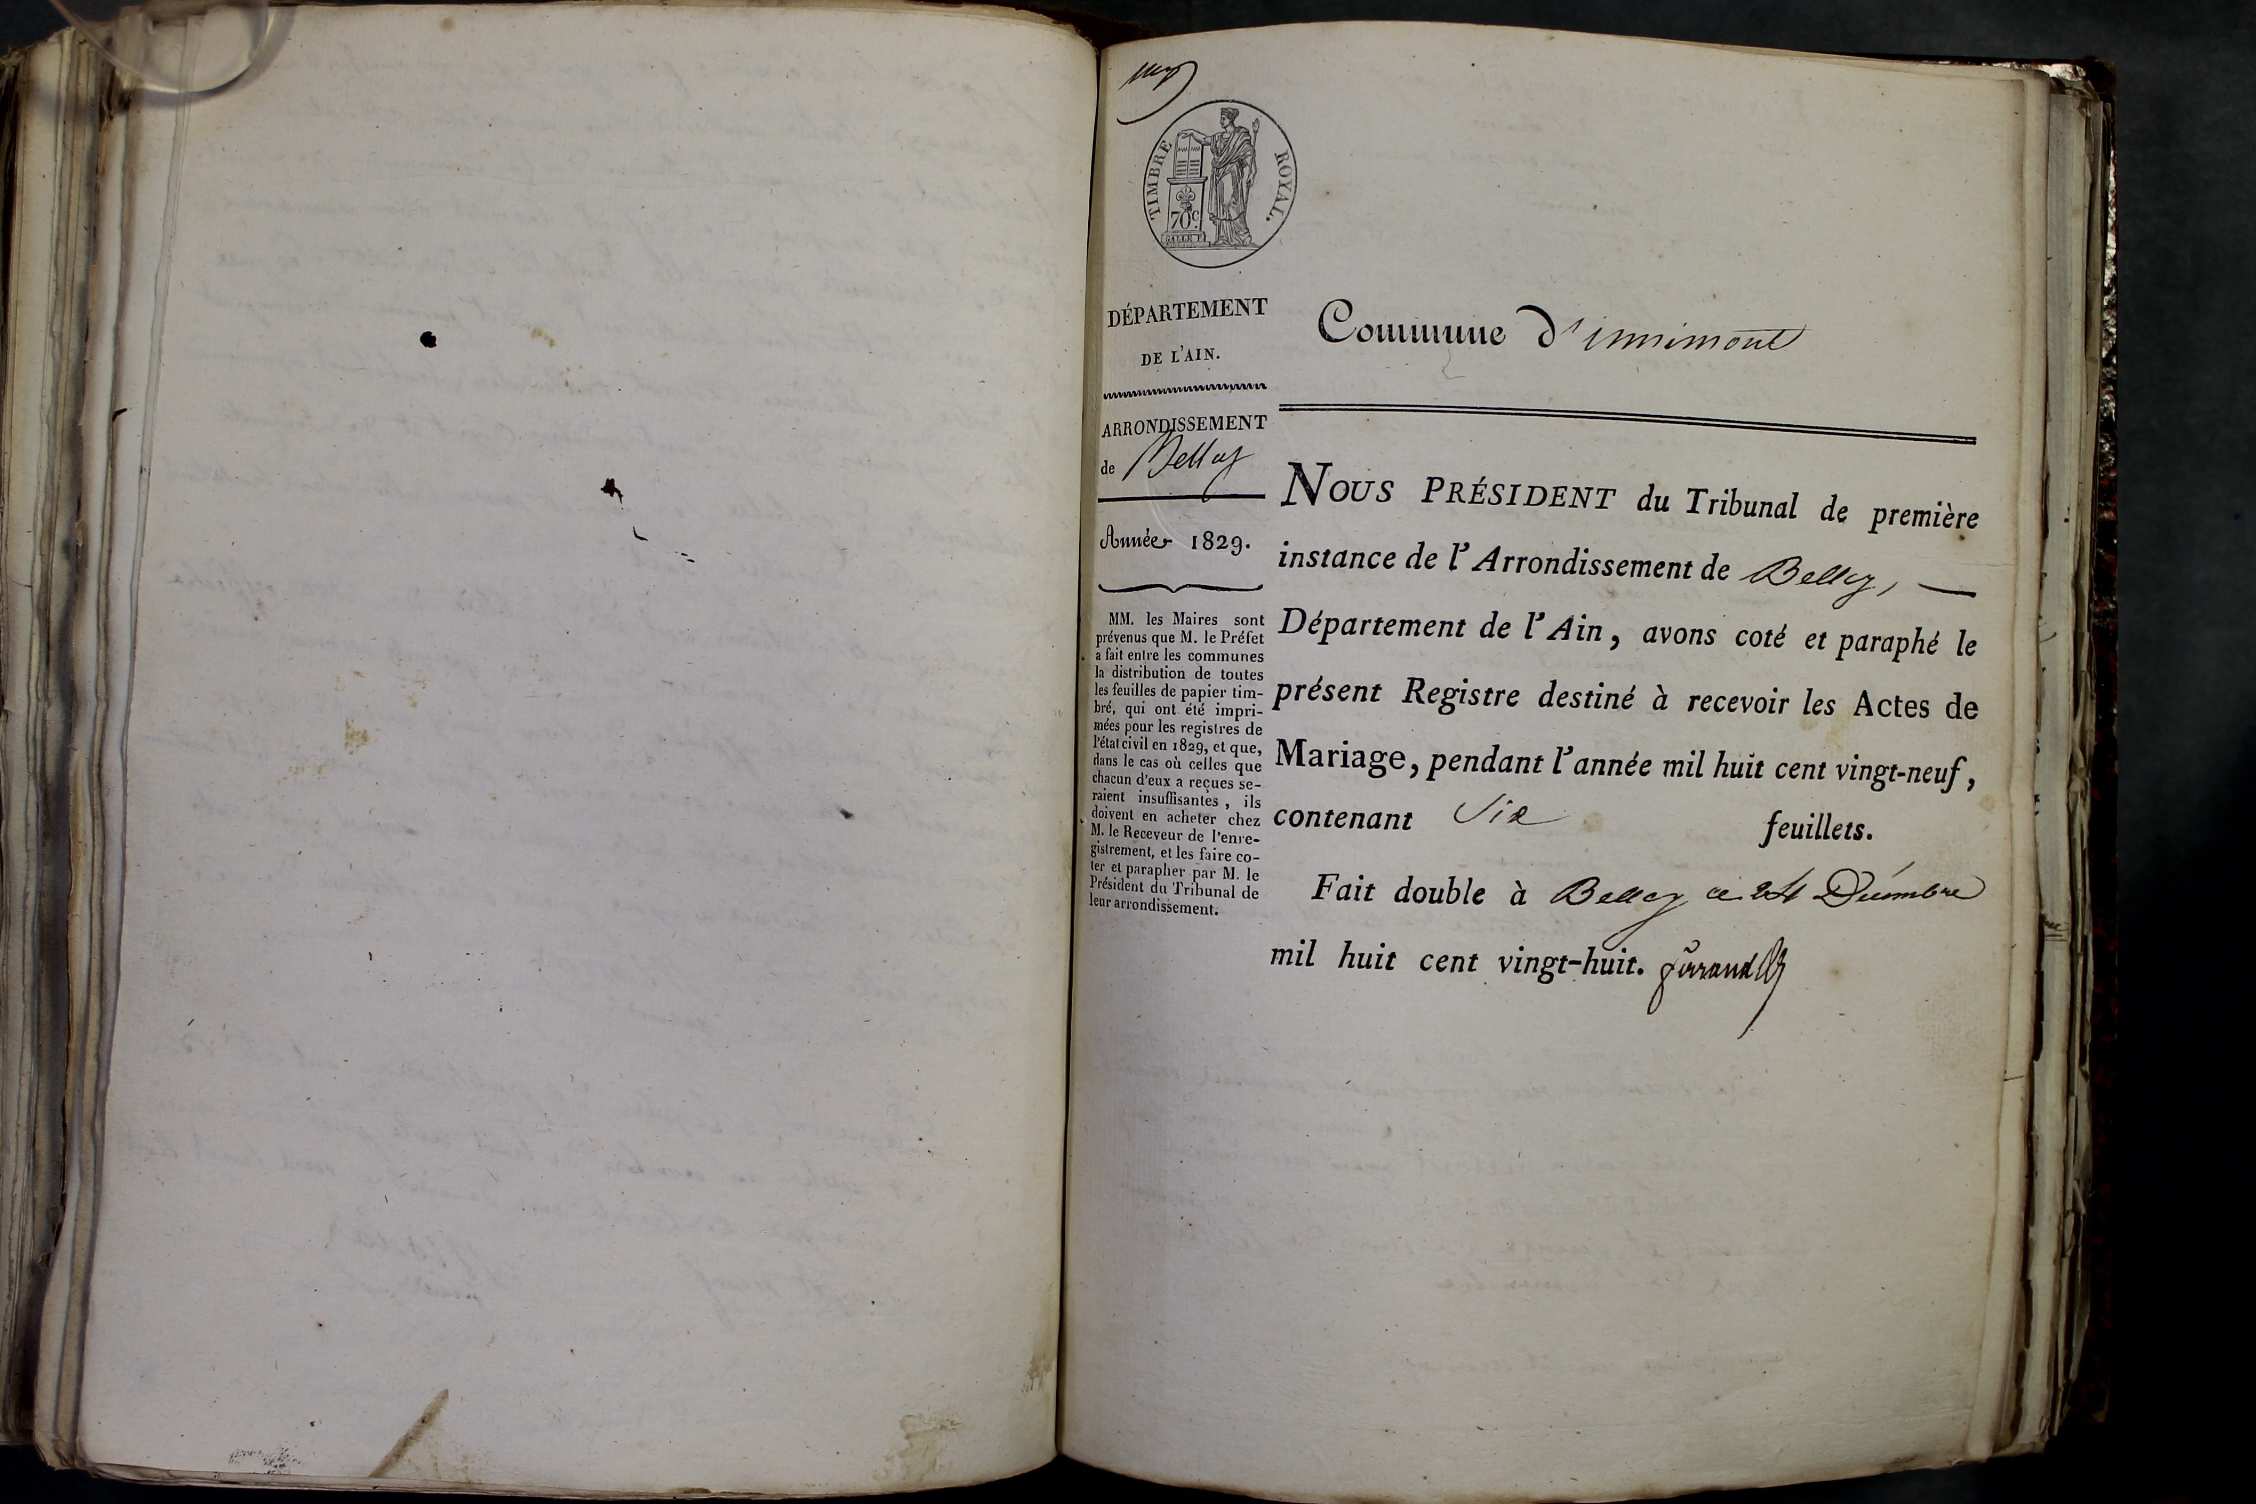 TIMBRE ROYAL.
70c
DÉPARTEMENT
DE L'AIN.
ARRONDISSEMENT
de Belley
Année 1829.
MM. les Maires sont
prévenus que M. le Préfet
a fait entre les communes
la distribution de toutes
les feuilles de papier tim-
bré, qui ont été impri-
mées pour les registres de
l'état civil en 1829, et que,
dans le cas où celles que
chacun d'eux a reçues se-
raient insuffisantes, ils
doivent en acheter chez
M. le Receveur de l'enre-
gistrement, et les faire co-
ter et parapher par M. le
Président du Tribunal de
leur arrondissement.
Commune d'innimont
NOUS PRÉSIDENT du Tribunal de première
instance de l'Arrondissement de Belley,
Département de l'Ain, avons coté et paraphé le
présent Registre destiné à recevoir les Actes de
Mariage, pendant l'année mil huit cent vingt-neuf,
contenant Six feuillets.
Fait double à Belley ce 24 Décembre
mil huit cent vingt-huit.